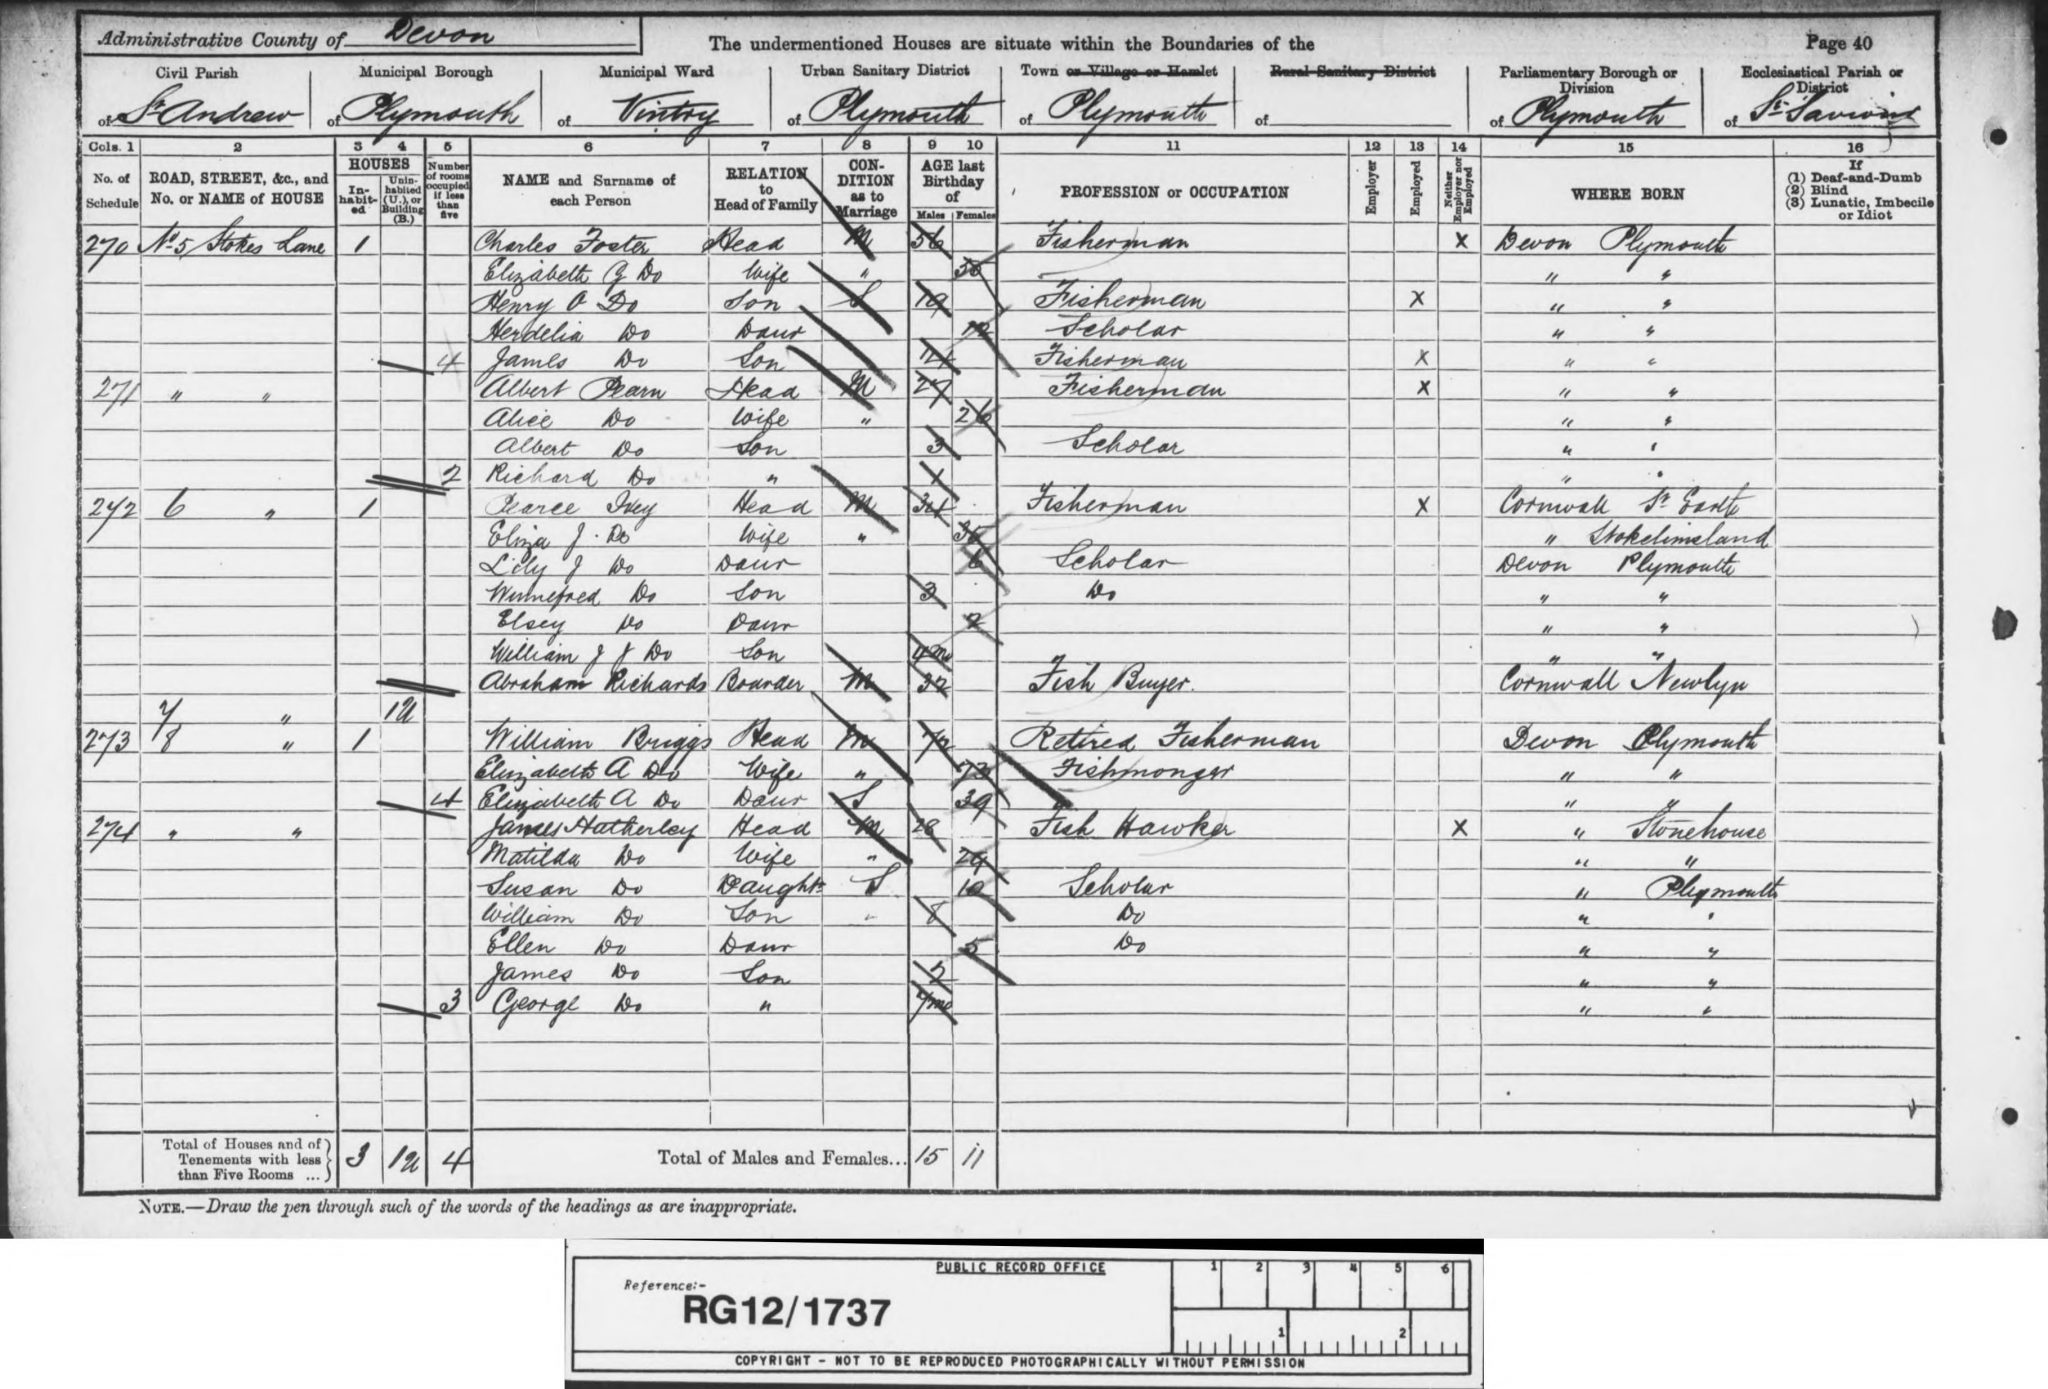 Administrative County of Devon The undermentioned Houses are situate within the Boundaries of the Page 40
Civil Parish of St Andrew
Municipal Borough of Plymouth
Municipal Ward of Vintry
Urban Sanitary District of Plymouth
Town or Village or Hamlet of Plymouth
Rural Sanitary District of
Parliamentary Borough or Division of Plymouth
Ecclesiastical Parish or District of St Saviour
Cols. 1 2 3 4 5 6 7 8 9 10 11 12 13 14 15 16
No. of Schedule
ROAD, STREET, &c., and No. or NAME of HOUSE
HOUSES
In-habit-ed
Unin-habited (U.), or Building (B.)
Number of rooms occupied if less than five
NAME and Surname of each Person
RELATION to Head of Family
CON-DITION as to Marriage
AGE last Birthday of
Males Females
PROFESSION or OCCUPATION
Employer
Employed
Neither Employer nor Employed
WHERE BORN
If (1) Deaf-and-Dumb (2) Blind (3) Lunatic, Imbecile or Idiot
270 No 5 Stokes Lane 1 Charles Foster Head M 56 Fisherman X Devon Plymouth
Elizabeth Do Wife " " "
Henry O Do Son S 19 Fisherman X " "
Herdelia Do Daur 12 Scholar " "
4 James Do Son 14 Fisherman X " "
271 " " Albert Pearn Head M 27 Fisherman X " "
Alice Do Wife " 26 " "
Albert Do Son 3 Scholar " "
2 Richard Do " 1 " "
272 6 " 1 Pearce Ivey Head M 34 Fisherman X Cornwall St
Eliza J. Do Wife " 36 " Stokelimsland
Lily J Do Daur 6 Scholar Devon Plymouth
Winnefred Do Son 3 Do " "
Elsey Do Daur 2 " "
William J J Do Son 4mo " "
Abraham Richards Boarder M 32 Fish Buyer. Cornwall Newlyn
7 " 1U
273 8 " 1 William Briggs Head M 72 Retired Fisherman Devon Plymouth
Elizabeth A Do Wife " 73 Fishmonger " "
4 Elizabeth A Do Daur S 39 " "
274 " " James Hatherley Head M 28 Fish Hawker X " Stonehouse
Matilda Do Wife " 29 " "
Susan Do Daughtr S 10 Scholar " Plymouth
William Do Son " 8 Do " "
Ellen Do Daur 5 Do " "
James Do Son 2 " "
3 George Do " 7mo " "
Total of Houses and of Tenements with less than Five Rooms ... 3 1U 4 Total of Males and Females... 15 11
NOTE.—Draw the pen through such of the words of the headings as are inappropriate.
PUBLIC RECORD OFFICE 1 2 3 4 5 6
Reference:-
RG12/1737
1 2
COPYRIGHT - NOT TO BE REPRODUCED PHOTOGRAPHICALLY WITHOUT PERMISSION